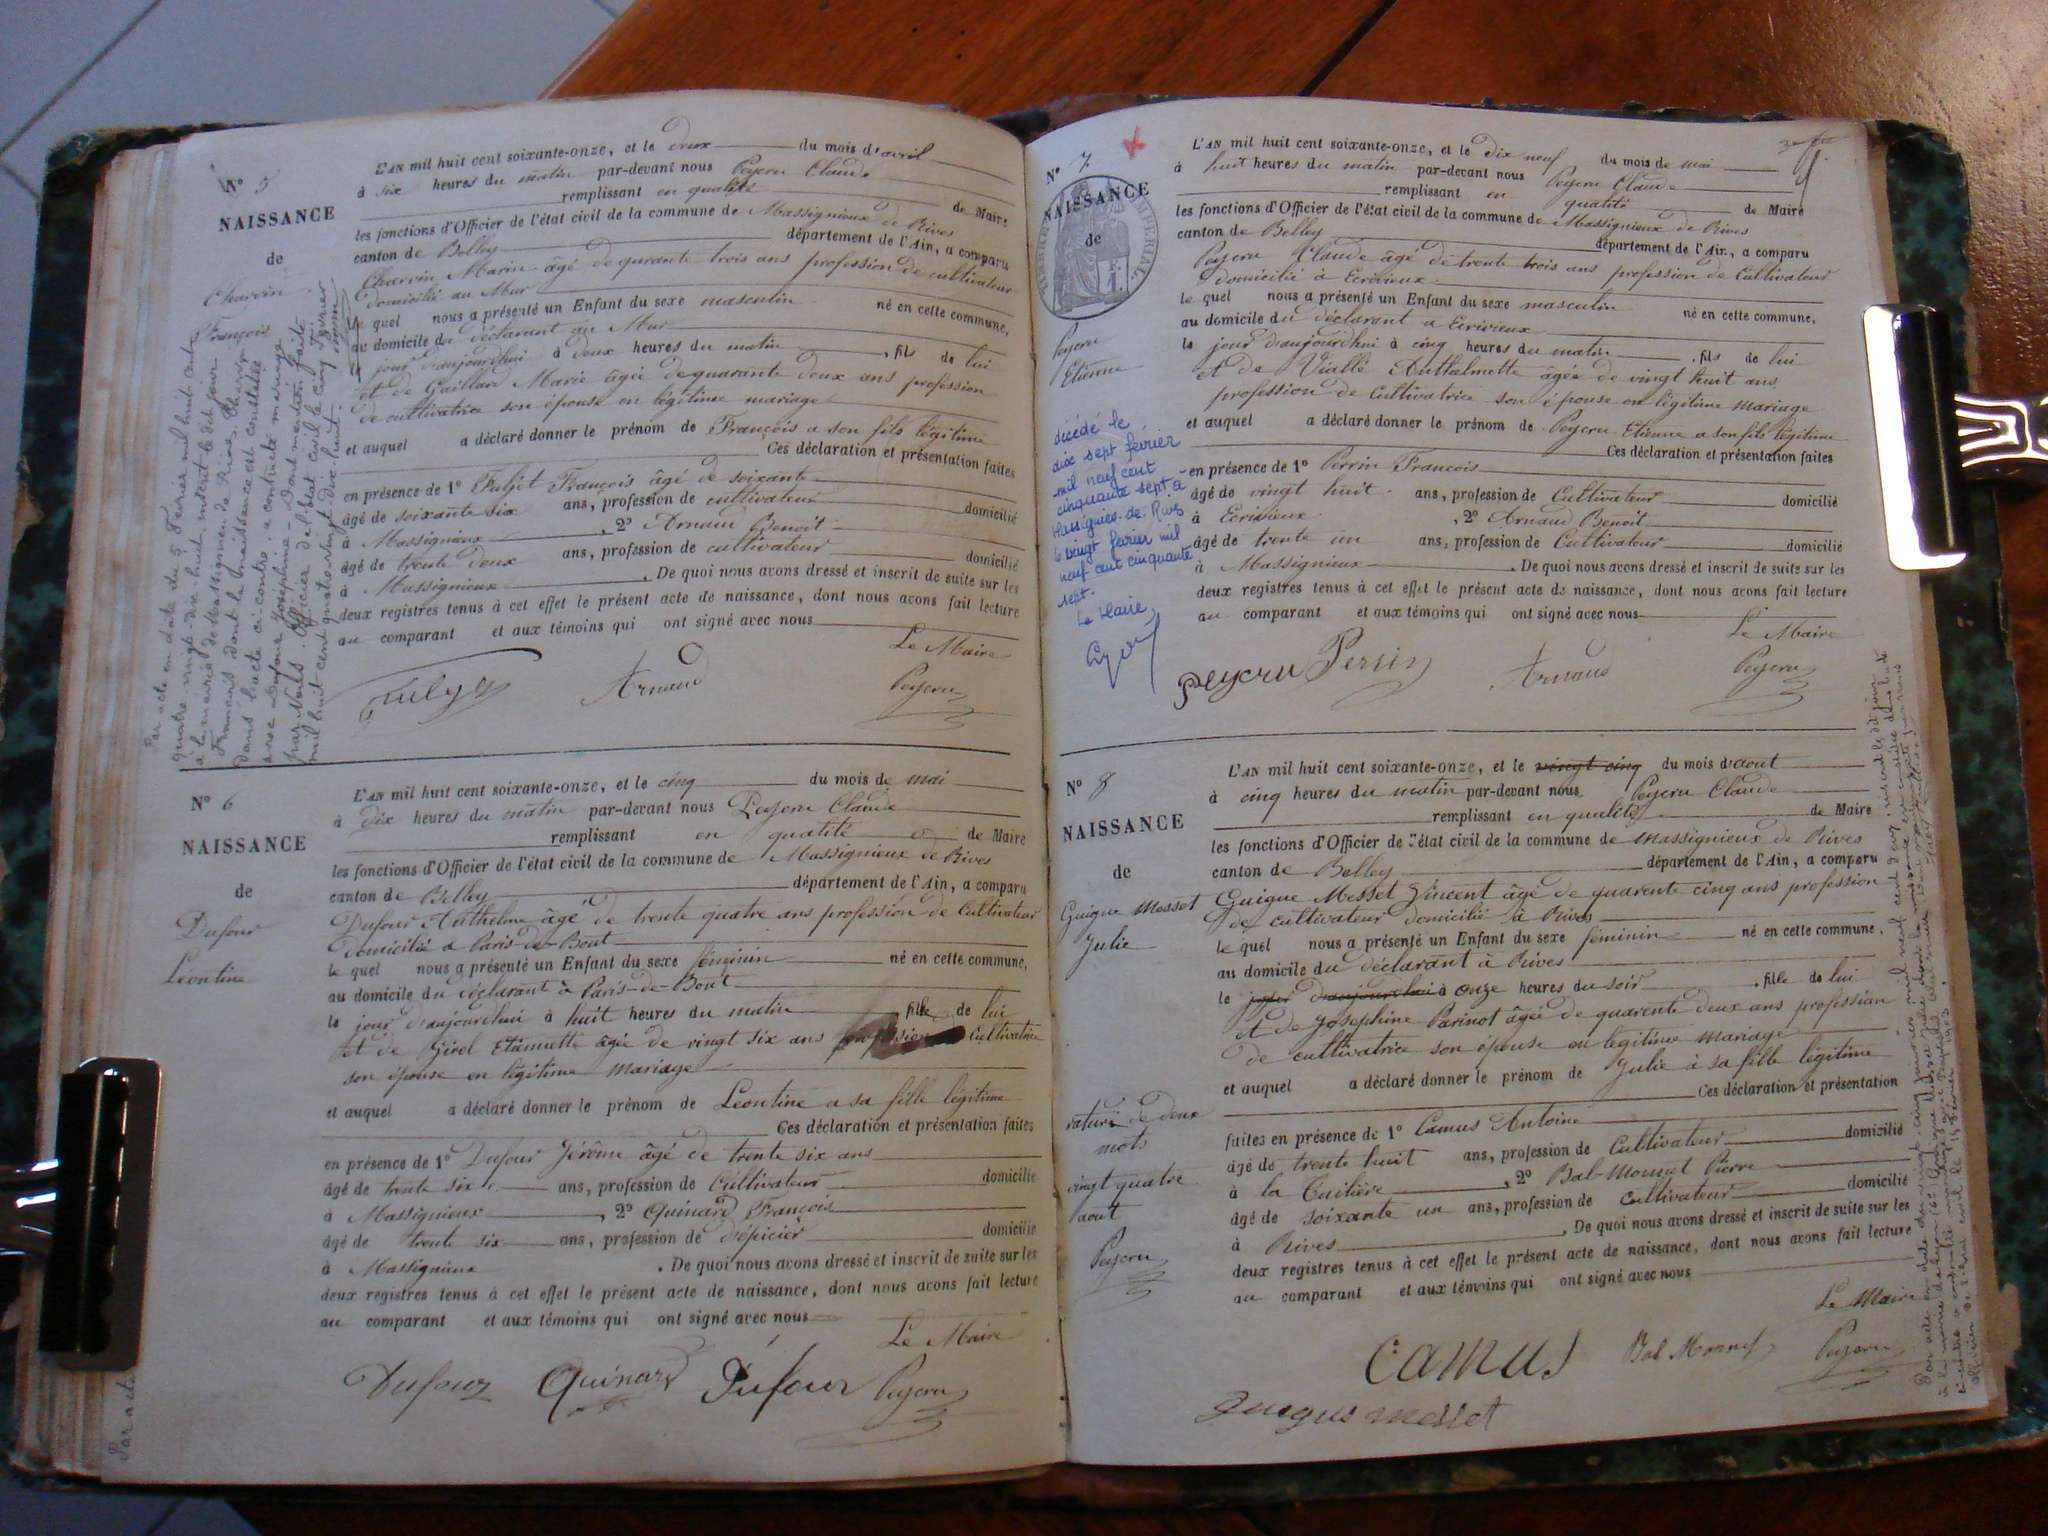 N° 5
NAISSANCE
de
Charvin
François
L'AN mil huit cent soixante-onze, et le deux du mois d'avril
à six heures du matin par-devant nous Peycru Claude
remplissant en qualité de Maire
les fonctions d'Officier de l'état civil de la commune de Massignieux de Rives
canton de Belley département de l'Ain, a comparu
Charvin Marin âgé de quarante trois ans profession de cultivateur
domicilié au Mur
le quel nous a présenté un Enfant du sexe masculin né en cette commune,
au domicile du déclarant au Mur
le jour d'aujourdhui à deux heures du matin, fils de lui
et de Gaillard Marie âgée de quarante deux ans profession
de cultivatrice son épouse en légitime mariage
et auquel a déclaré donner le prénom de François a son fils légitime
Ces déclaration et présentation faites
en présence de 1° François âgé de soixante
âgé de soixante six ans, profession de cultivateur domicilié
à Massignieux, 2° Arnaud Benoit
âgé de trente deux ans, profession de cultivateur domicilié
à Massignieux. De quoi nous avons dressé et inscrit de suite sur les
deux registres tenus à cet effet le présent acte de naissance, dont nous avons fait lecture
au comparant et aux témoins qui ont signé avec nous
Le Maire
Arnaud Peycru
Par acte en date du 5 Février mil huit cent
quatre-vingt-dix huit, inscrit le dit jour
à la mairie de Massignieu de Rives, Charvin
François dont la naissance est constatée
dans l'acte ci-contre, a contracté mariage
avec Dufour Joséphine - Dont mention faite
par Nous, Officier de l'état civil le cinq Février
mil huit cent quatre vingt dix huit.
N° 6
NAISSANCE
de
Dufour
Léontine
L'AN mil huit cent soixante-onze, et le cinq du mois de mai
à dix heures du matin par-devant nous Peycru Claude
remplissant en qualité de Maire
les fonctions d'Officier de l'état civil de la commune de Massignieux de Rives
canton de Belley département de l'Ain, a comparu
Dufour Anthelme âgé de trente quatre ans profession de Cultivateur
domicilié a Paris-de-Bout
le quel nous a présenté un Enfant du sexe féminin né en cette commune,
au domicile du déclarant à Paris-de-Bout
le jour d'aujourdhui à huit heures du matin, fille de lui
et de Girel Etiennette âgée de vingt six ans profession Cultivatrice
son épouse en légitime mariage
et auquel a déclaré donner le prénom de Léontine a sa fille légitime
Ces déclaration et présentation faites
en présence de 1° Dufour Jérôme âgé de trente six ans
âgé de trente six ans, profession de Cultivateur domicilié
à Massignieux, 2° Quinard François
âgé de trente six ans, profession d'épicier domicilié
à Massignieux. De quoi nous avons dressé et inscrit de suite sur les
deux registres tenus à cet effet le présent acte de naissance, dont nous avons fait lecture
au comparant et aux témoins qui ont signé avec nous
Le Maire
Dufour Quinard Dufour Peycru
Par acte
N° 7
NAISSANCE
de
TIMBRE IMPERIAL
Peycru
Etienne
décédé le
dix sept février
mil neuf cent
cinquante sept à
Massignieu-de-Rives
le vingt février mil
neuf cent cinquante
sept.
Le Maire
L'AN mil huit cent soixante-onze, et le dix neuf du mois de mai
à huit heures du matin par-devant nous Peycru Claude
remplissant en qualité de Maire
les fonctions d'Officier de l'état civil de la commune de Massignieux de Rives
canton de Belley département de l'Ain, a comparu
Peycru Claude âgé de trente trois ans profession de Cultivateur
domicilié à Ecrivieux
le quel nous a présenté un Enfant du sexe masculin né en cette commune,
au domicile du déclarant a Ecrivieux
le jour d'aujourdhui à cinq heures du matin, fils de lui
et de Viallé Anthelmette âgée de vingt huit ans
profession de Cultivatrice son épouse en légitime mariage
et auquel a déclaré donner le prénom de Peycru Etienne a son fils légitime
Ces déclaration et présentation faites
en présence de 1° Perrin François
âgé de vingt huit ans, profession de Cultivateur domicilié
à Ecrivieux, 2° Arnaud Benoit
âgé de trente un ans, profession de Cultivateur domicilié
à Massignieux. De quoi nous avons dressé et inscrit de suite sur les
deux registres tenus à cet effet le présent acte de naissance, dont nous avons fait lecture
au comparant et aux témoins qui ont signé avec nous
Le Maire
Peycru Perrin Arnaud Peycru
N° 8
NAISSANCE
de
Guigue Messet
Julie
rature de deux
mots
vingt quatre
aout
Peycru
L'AN mil huit cent soixante-onze, et le vingt cinq du mois d'aout
à cinq heures du matin par-devant nous Peycru Claude
remplissant en qualité de Maire
les fonctions d'Officier de l'état civil de la commune de Massignieux de Rives
canton de Belley département de l'Ain, a comparu
Guigue Messet Vincent âgé de quarente cinq ans profession
de cultivateur domicilié à Rives
le quel nous a présenté un Enfant du sexe féminin né en cette commune,
au domicile du déclarant à Rives
le jour d'aujourdhui à onze heures du soir, fille de lui
et de Josephine Parinot âgée de quarente deux ans profession
de cultivatrice son épouse en légitime mariage
et auquel a déclaré donner le prénom de Julie à sa fille légitime
Ces déclaration et présentation
faites en présence de 1° Camus Antoine
âgé de trente huit ans, profession de Cultivateur domicilié
à la Tuilière, 2° Bal-Monnet Pierre
âgé de soixante un ans, profession de Cultivateur domicilié
à Rives. De quoi nous avons dressé et inscrit de suite sur les
deux registres tenus à cet effet le présent acte de naissance, dont nous avons fait lecture
au comparant et aux témoins qui ont signé avec nous
Le Maire
Camus Bal Monnet Peycru
Guigue Messet